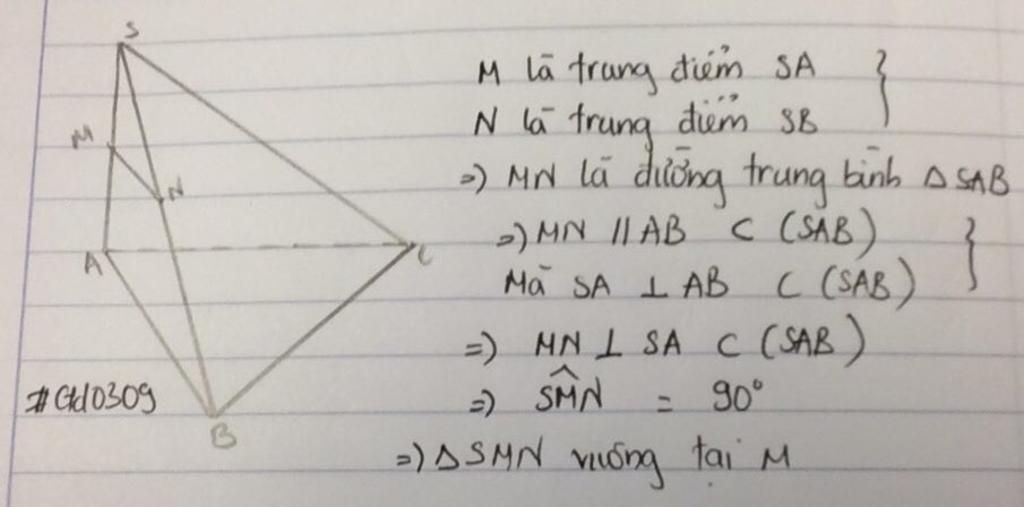 S
M
N
A
C
B
#Gtd0309
M là trung điểm SA
N là trung điểm SB
=) MN là đường trung bình Δ SAB
=) MN // AB ⊂ (SAB)
Mà SA ⊥ AB ⊂ (SAB)
=) MN ⊥ SA ⊂ (SAB)
=) SM̂N = 90°
=) Δ SMN vuông tại M